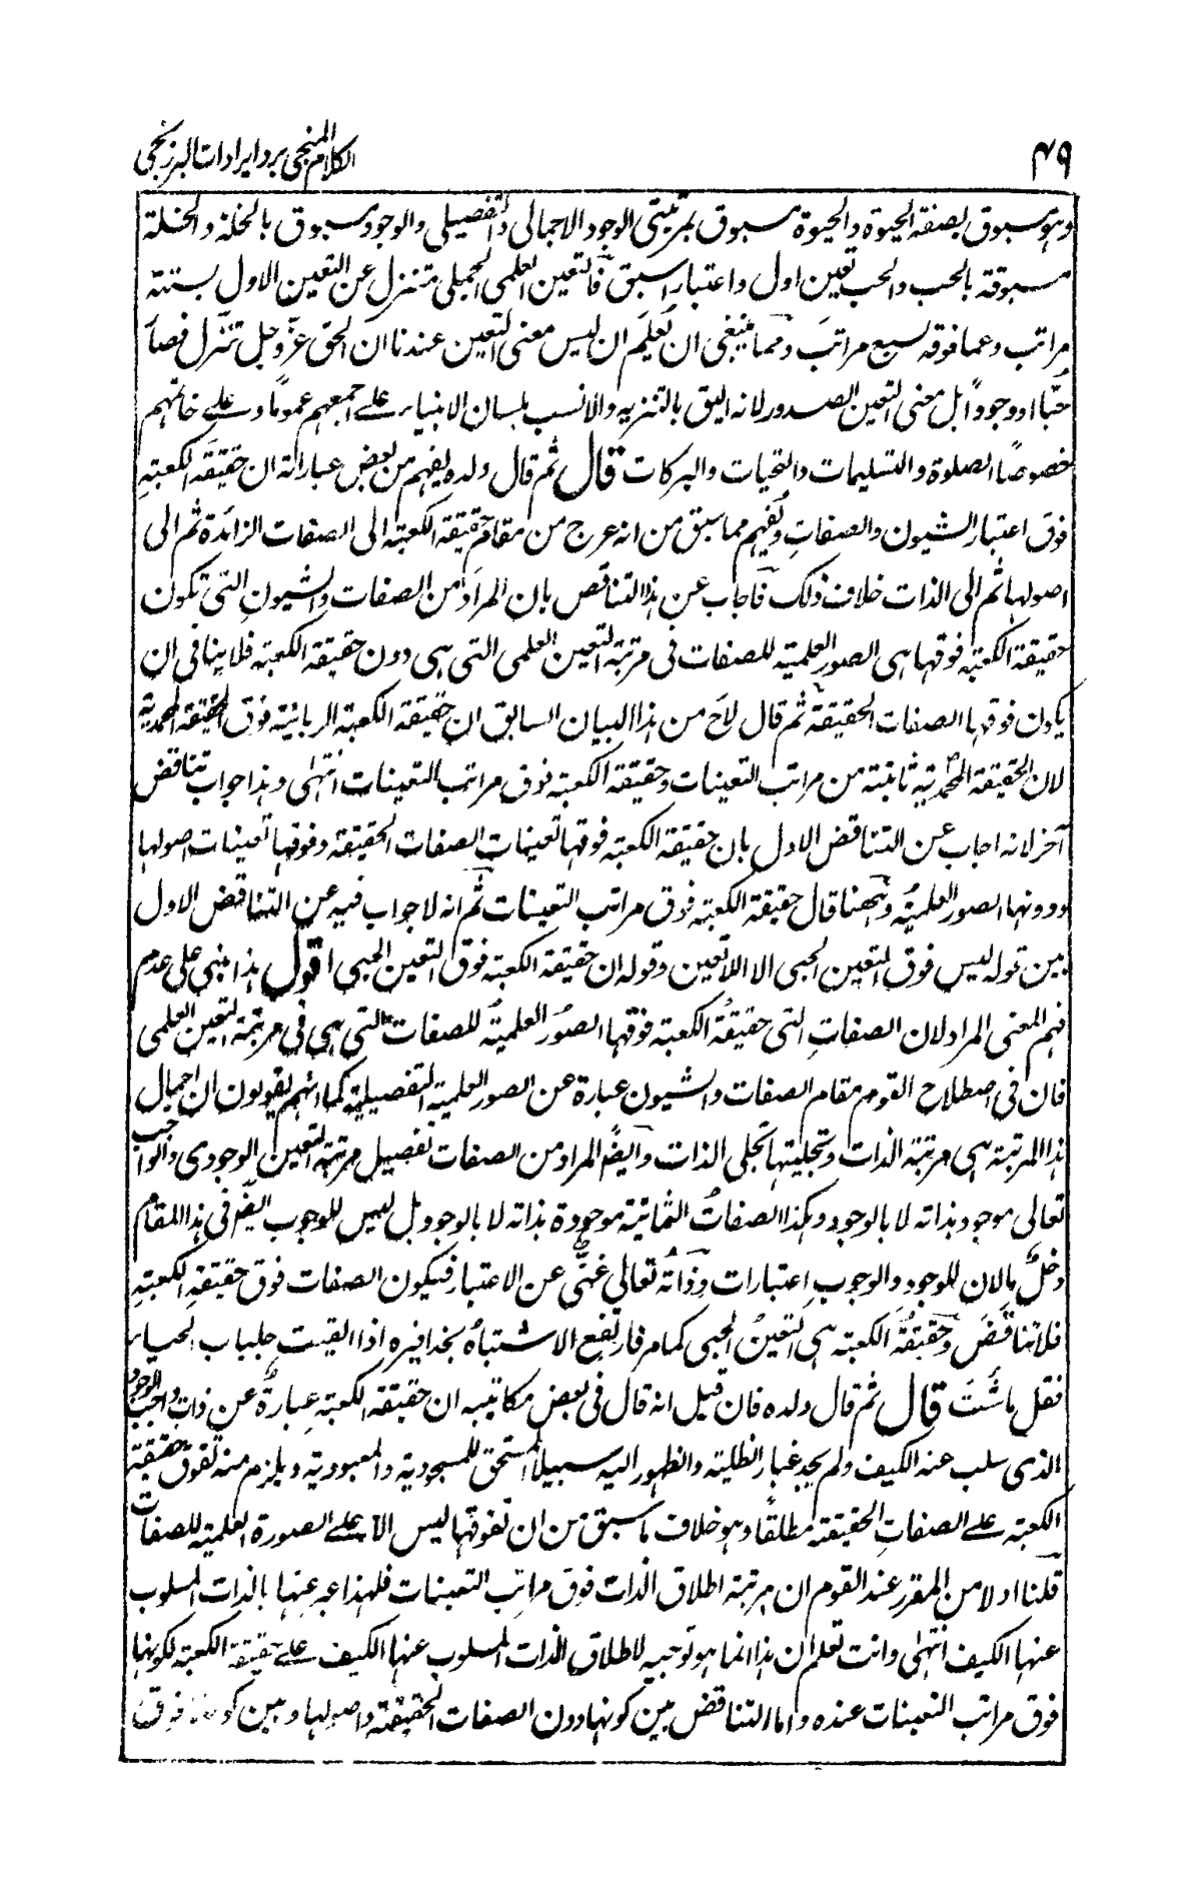 ۴۹
الكلام المنجي برد ايرادات البرزنجي
وهو مسبوق بصفة الحيوة والحيوة مسبوق بمرتبتى الوجود الاجمالى والتفصيلى والوجود مسبوق بالخلة والخلة
مسبوقة بالحب والحب تعين اول واعتبار اسبق فالتعين العلمى الجملى متنزل عن التعين الاول بستة
مراتب وعما فوقه بسبع مراتب ومما ينبغى ان تعلم ان ليس معنى التعين عندنا ان الحق عز وجل تنزل فصار
حبّا او وجوداً بل معنى التعين الصدور لانه اليق بالتنزيه والانسب بلسان الانبياء على اجمعهم عموماً وعلى خاتمهم
خصوصًا الصلوة والتسليمات والتحيات والبركات قال ثم قال ولده يفهم من بعض عباراته ان حقيقة الكعبة
فوق اعتبار الشيون والصفاتِ ويفهم مما سبق من انه عرج من مقام حقيقة الكعبة الى الصفات الزائدة ثم الى
اصولها ثم الى الذات خلاف ذلك فاجاب عن هذا التناقص بان المراد من الصفات والشيونِ التى تكون
حقيقة الكعبة فوقها هى الصور العلمية للصفات فى مرتبة التعين العلمى التى هى دون حقيقة الكعبة فلا ينافى ان
يكون فوقها الصفات الحقيقة ثم قال لاح من هذا البيان السابق ان حقيقة الكعبة الربانية فوق الحقيقة المحمدية
لان الحقيقة المحمدية ثابتة من مراتب التعينات وحقيقة الكعبة فوق مراتب التعينات انتهى وهذا جواب تناقض
آخر لانه اجاب عن التناقض الاول بان حقيقة الكعبة فوقها تعينات الصفات الحقيقة وفوقها تعينات اصولها
ودونها الصور العلمية وههنا قال حقيقة الكعبة فوق مراتب التعينات ثم انه لا جواب فيه عن التناقض الاول
بين قوله ليس فوق التعين الحبى الا اللاتعين وقوله ان حقيقة الكعبة فوق التعين الحبى اقول هذا مبنى على عدم
فهم المعنى المراد لان الصفاتِ التى حقيقةُ الكعبة فوقها الصورُ العلميةُ للصفات التى هى فى مرتبة التعين العلمى
فان فى اصطلاح القوم مقام الصفات والشيون عبارة عن الصور العلمية التفصيلية كما انهم يقولون ان اجمال
هذا المرتبة هى مرتبة الذات وتجليتها تجلى الذات وايضًا المراد من الصفات تفصيل مرتبة التعين الوجودى والواجب
تعالى موجود بذاته لا بالوجود وكذا الصفاتُ الثمانية موجودة بذاته لا بالوجود بل ليس للوجوب ايضًا فى هذا المقام
دخلٌ بالان للوجود والوجوبِ اعتبارات وذاتُه تعالى غنىٌّ عن الاعتبار فيكون الصفات فوق حقيقة الكعبة
فلا تناقضَ وحقيقةُ الكعبة هى التعينُ الحبى كما مر فارتفع الاشتباهُ بحذافيره اذا القيت جلباب الحياء
فقل ما شئت قال ثم قال ولده فان قيل انه قال فى بعض مكاتيبه ان حقيقة الكعبة عبارةٌ عن ذات واجب الوجود
الذى سلب عنه الكيف ولم يجد غبار الظلية والظهور اليه سبيلا المستحق للمسجودية والمعبودية ويلزم منه تفوق حقيقة
الكعبة على الصفاتِ الحقيقة مطلقًا وهو خلاف ما سبق من ان تفوقها ليس الا على الصورة العلمية للصفات
قلنا اولا من المقرر عند القوم ان مرتبة اطلاق الذات فوق مراتب التعينات فلهذا عبر عنها بالذات المسلوب
عنها الكيف انتهى وانت تعلم ان هذا انما هو توجيه لاطلاق الذات المسلوب عنها الكيف على حقيقة الكعبة لكونها
فوق مراتب التعينات عنده واما التناقض بين كونها دون الصفات الحقيقة واصولها وبين كونها فوق